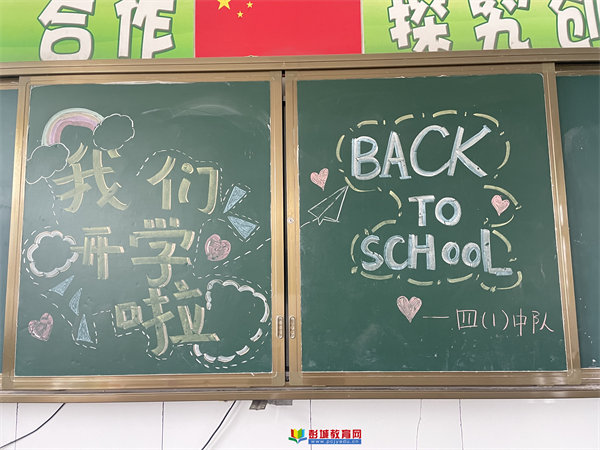 合作
探究
我们
开学
啦
BACK
TO
SCHOOL
一四(1)中队
彭城教育网
www.pcjyedu.cn